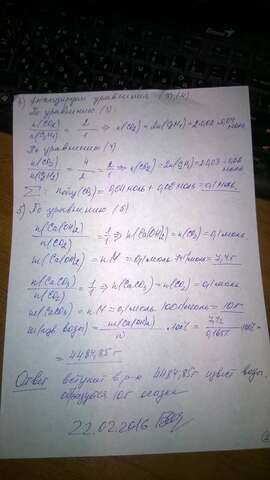 4) Анализируем уравнения (3),(4)
По уравнению (3)
n(CO2)/n(C2H4) = 2/1 ⇒ n(CO2) = 2n(C2H4) = 2·0,02 = 0,04 моль
По уравнению (4)
n(CO2) = 4/2 = 2/1 ⇒ n(CO2) = 2n( ) = 2·0,03 = 0,06 моль
Σ: nобщ(CO2) = 0,04 моль + 0,06 моль = 0,1 моль
5) По уравнению (5)
n(Ca(OH)2)/n(CO2) = 1/1 ⇒ n(Ca(OH)2) = n(CO2) = 0,1 моль
m(Ca(OH)2) = n·M = 0,1 моль· = 7,4 г
n(CaCO3)/n(CO2) = 1/1 ⇒ n(CaCO3) = n(CO2) = 0,1 моль
m(CaCO3) = n·M = 0,1 моль·100 г/моль = 10 г
m(изв воды) = m(Ca(OH)2)/ω ·100% = ·100% =
= 4484,85 г
Ответ вступит в р-ю 4484,85 г извест воды,
образуется 10 г осадка
22.02.2016